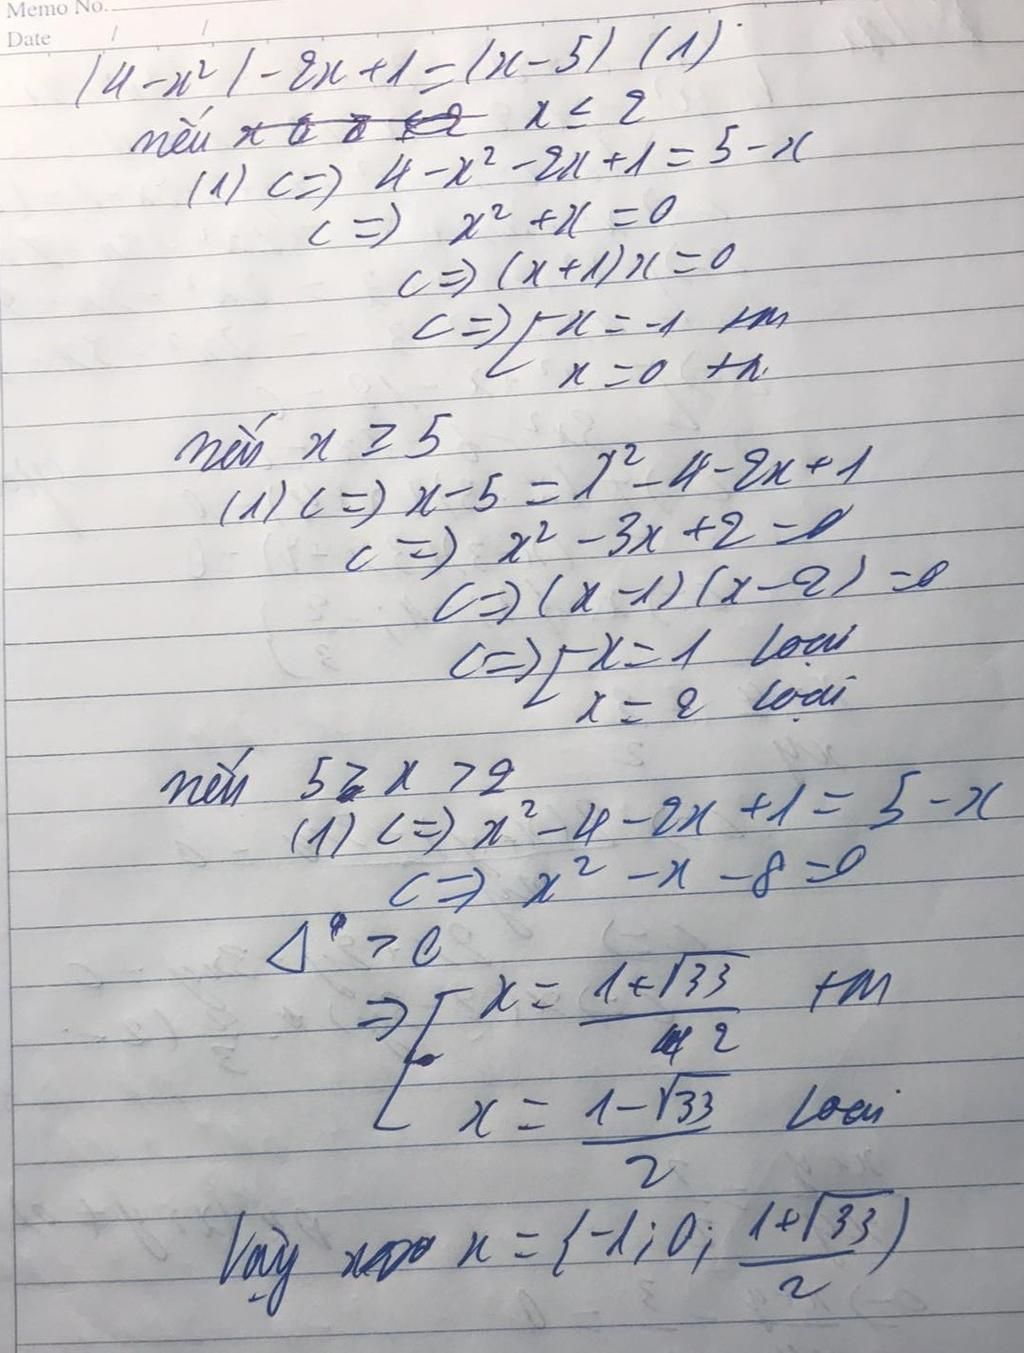 Memo No.
Date / /
|4-x²|-2x+1=|x-5| (1)
nếu x ≤ 2
(1) <=> 4-x²-2x+1=5-x
<=> x²+x=0
<=> (x+1)x=0
<=> [x=-1 tm
x=0 tm
nếu x ≥ 5
(1) <=> x-5=x²-4-2x+1
<=> x²-3x+2=0
<=> (x-1)(x-2)=0
<=> [x=1 loại
x=2 loại
nếu 5 ≥ x > 2
(1) <=> x²-4-2x+1=5-x
<=> x²-x-8=0
Δ > 0
=> [x = (1+√33)/2 tm
x = (1-√33)/2 loại
Vậy x={-1;0; (1+√33)/2}